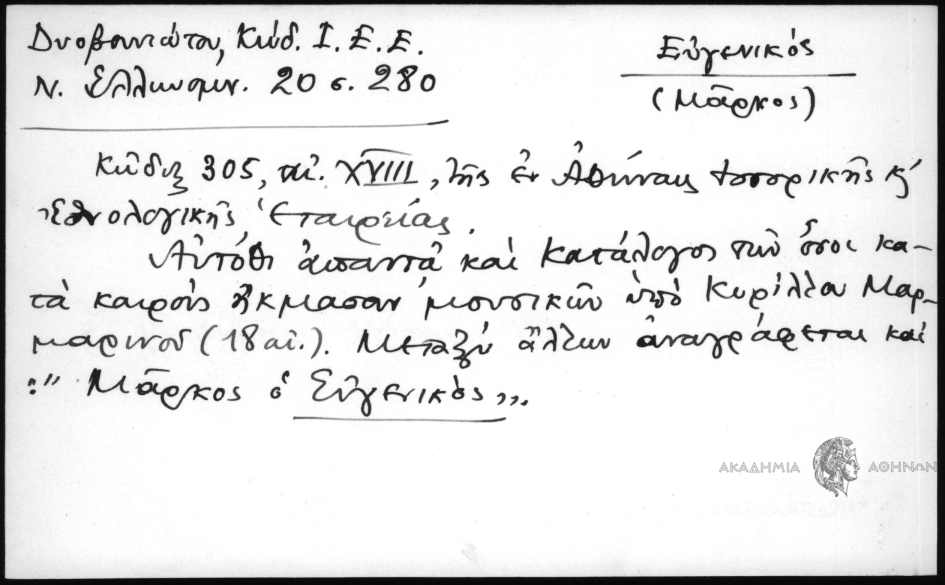 Δυοβουνιώτου, Κώδ. Ι. Ε. Ε.
Ν. Ἑλληνομν. 20 σ. 280
Εὐγενικός
(Μᾶρκος)
Κῶδιξ 305, αἰ. XVIII, τῆς ἐν Ἀθήναις Ἱστορικῆς κ'
Ἐθνολογικῆς Ἑταιρείας.
Αὐτόθι ἀπαντᾷ καὶ κατάλογος τῶν ὅσοι κα-
τὰ καιροὺς ἤκμασαν μουσικῶν ὑπὸ Κυρίλλου Μαρ-
μαρινοῦ (18 αἰ.). Μεταξὺ ἄλλων ἀναγράφεται καὶ
:" Μᾶρκος ὁ Εὐγενικὸς„.
ΑΚΑΔΗΜΙΑ ΑΘΗΝΩΝ